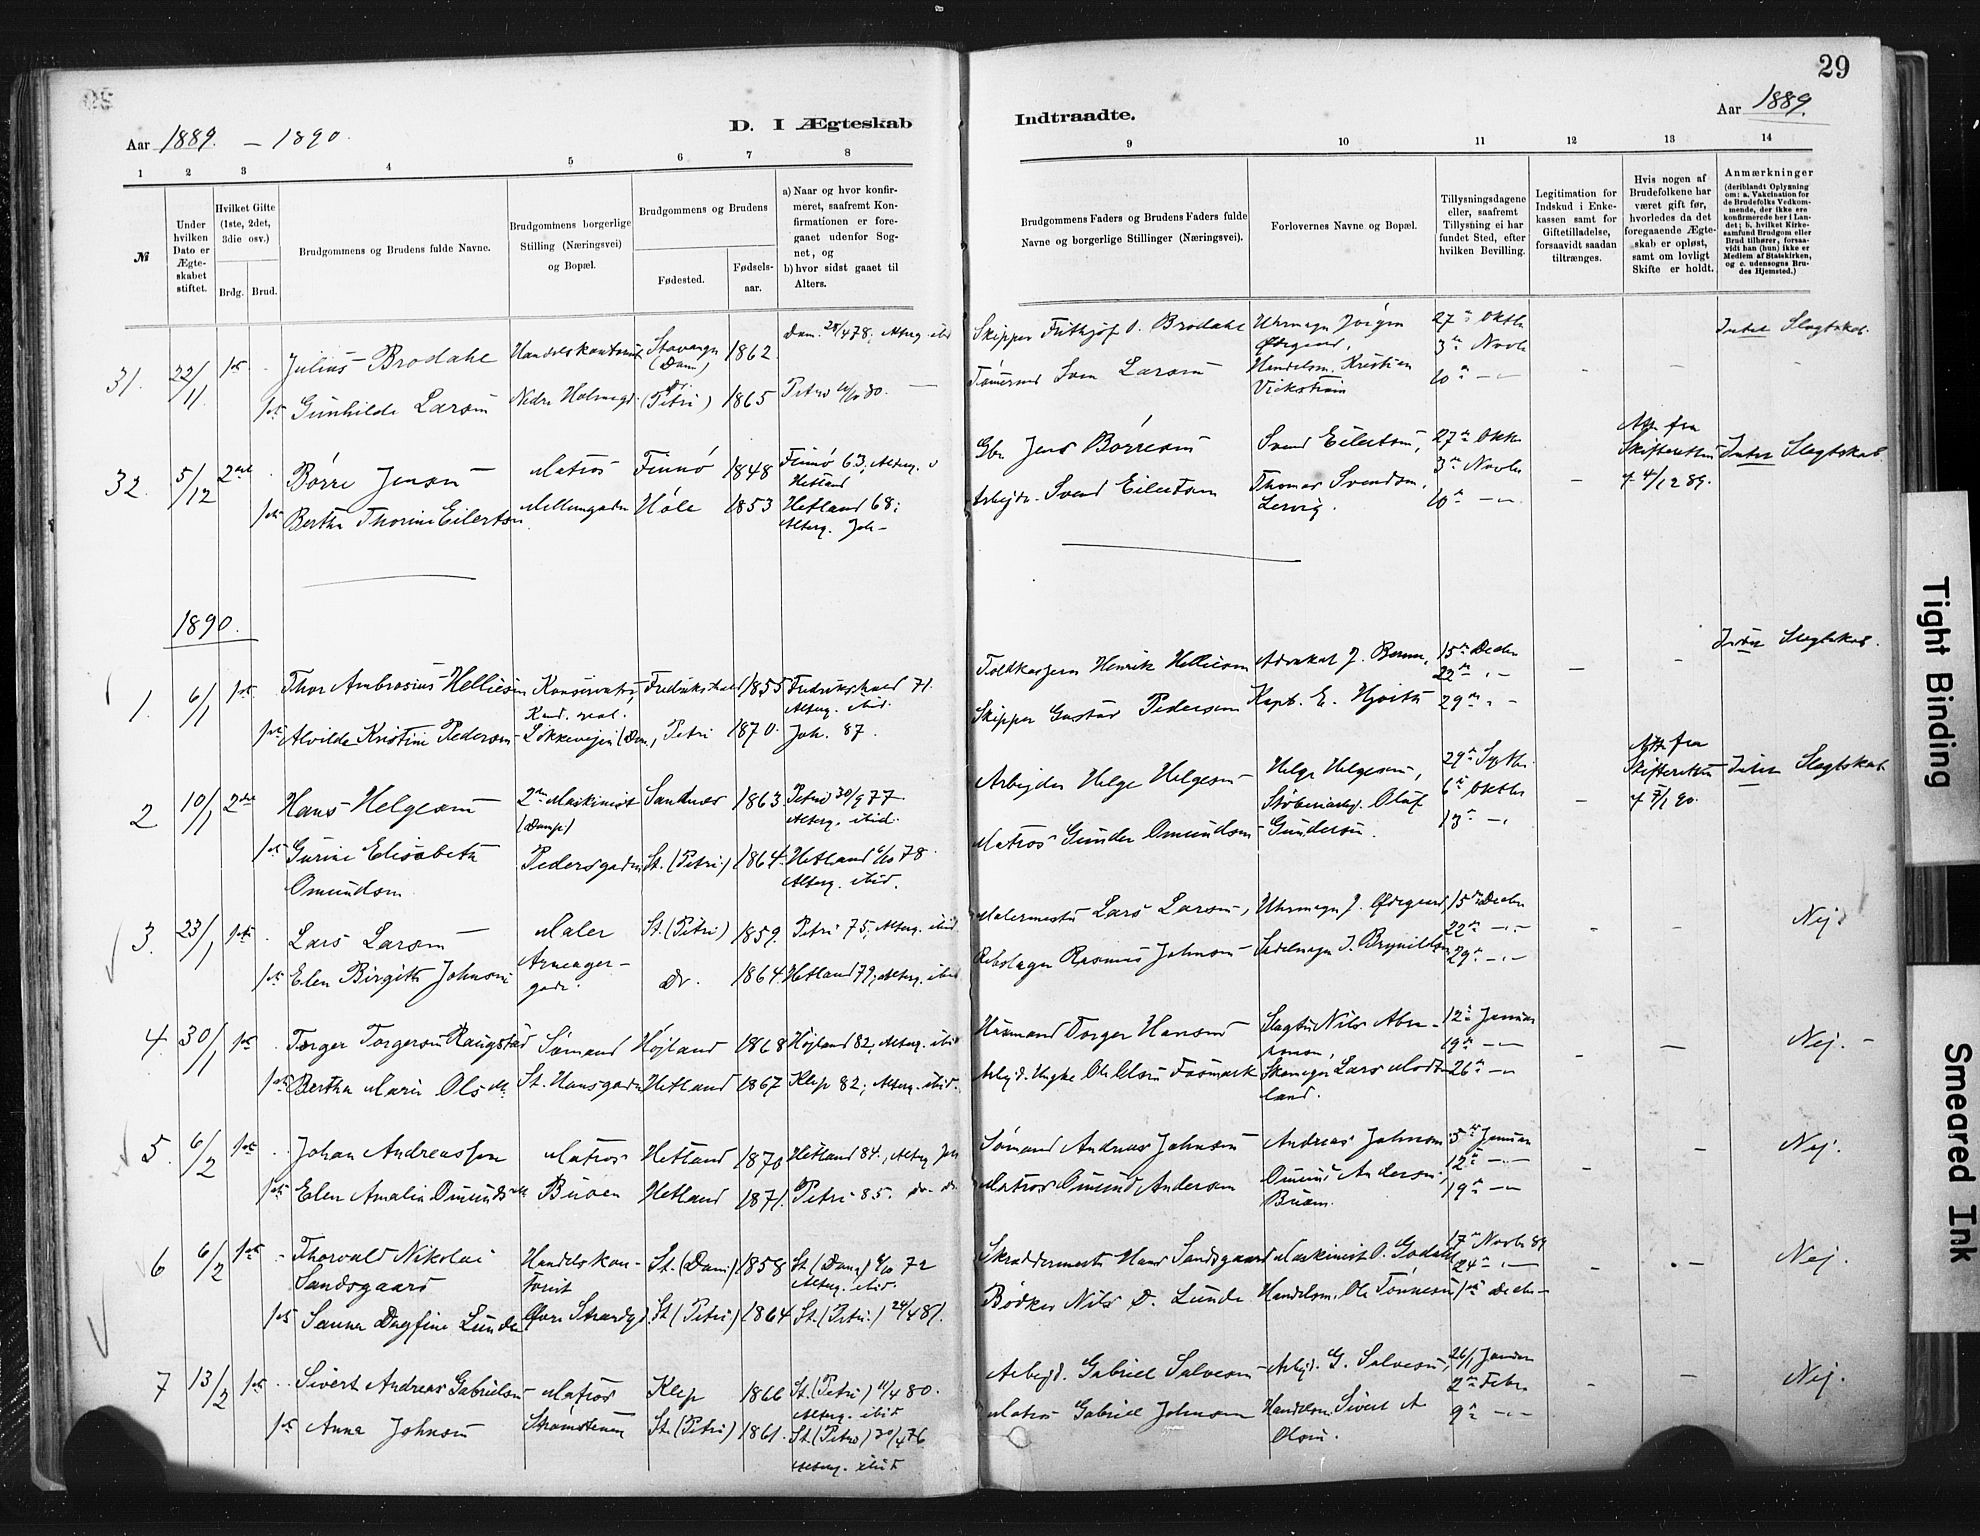 29
Aar 1889. – 1890.
D. I Ægteskab
Indtraadte.
Aar 1889.
1 2 3 4 5 6 7 8
9 10 11 12 13 14
№
Under hvilken Dato er Ægteskabet stiftet.
Hvilket Gifte (1ste, 2det, 3die osv.)
Brdg. Brud.
Brudgommens og Brudens fulde Navne.
Brudgommens borgerlige Stilling (Næringsvei) og Bopæl.
Brudgommens og Brudens
Fødested.
Fødselsaar.
a) Naar og hvor konfirmeret, saafremt Konfirmationen er foregaaet udenfor Sognet, og
b) hvor sidst gaaet til Alters.
Brudgommens Faders og Brudens Faders fulde Navne og borgerlige Stillinger (Næringsvei).
Forlovernes Navne og Bopæl.
Tillysningsdagene eller, saafremt Tillysning ei har fundet Sted, efter hvilken Bevilling.
Legitimation for Indskud i Enkekassen samt for Giftetilladelse, forsaavidt saadan tiltrænges.
Hvis nogen af Brudefolkene har været gift før, hvorledes da det foregaaende Ægteskab er opløst, samt om lovligt Skifte er holdt.
Anmærkninger
(deriblandt Oplysning om: a. Vakcination for de Brudefolks Vedkommende, der ikke ere konfirmerede her i Landet; b. hvilket Kirkesamfund Brudgom eller Brud tilhører, forsaavidt han (hun) ikke er Medlem af Statskirken, og c. udensogns Brudes Hjemsted.)
31. 22/11 1ste Julius Brodahl Handelskontorist Stavanger (Dom) 1862. Dom. 28/4 78; Alterg. ibid
Skipper Frithjof O. Brodahl Uhrmager Jørgen Ødegaard, 27de Oktbr Intet Slegtskab.
1ste Gunhilde Larsen Nedre Holmegd. (Petri) 1865
Tømmermd Sven Larsen Handelsm. Kristian Vickstrøm 3de Novbr 10de
32. 5/12 2det Børre Jensen Matros Finnø 1848 Finnø 63; Alterg. i Hetland
Gbr. Jens Børresen Svend Eilertsen, 27de Oktbr Att. fra Skifteretten af 4/12 89. Intet Slegtskab.
1ste Bertha Thorine Eilertsen Mellemgaden Høle 1853 Hetland 68; Alterg. Joh.
Arbejdr. Svend Eilertsen Thomas Svendsen, Lervig. 3de Novbr 10de
1890.
1. 6/1 1ste Thor Ambrosius Helliesen Konservator, Kand. real. Fredrikshald 1855 Fredrikshald 71. Alterg. ibid.
Toldkasserer Henrik Helliesen Advokat J. Berner, 15de Decbr 22de Intet Slegtskab.
1ste Alvilde Kristine Pedersen Løkkevejen (Dom, Petri 1870. Joh. 87.
Skipper Gustav Pedersen Kapt. E. Hjorth 29de
2 10/1 2det Hans Helgesen 2den Maskinist (Damp) Sandnæs 1863 Petri 30/9 77. Alterg. ibid.
Arbejder Helge Helgesen Helge Helgesen, 29de Septbr. 6te Oktbr Att. fra Skifteretten af 7/1 90. Intet Slegtskab
1ste Gurine Elisabeth Omundsen Pedersgaden St. (Petri) 1864. Hetland 6/10 78. Alterg. ibid.
Matros Gunder Omundsen Støberiarbd. Oluf Gundersen. 13de
3. 23/1 1ste Lars Larsen Maler St. (Petri) 1859. Petri 75; Alterg. ibid.
Malermester Lars Larsen, Uhrmager J. Ødegaard 15de Decbr 22de Nej.
1ste Elen Birgitte Johnsen Arneagergade. Do. 1864. Hetland 79; Alterg. ibid
Rebslager Rasmus Johnsen Sadelmager I. Brynildsen 29de
4. 30/1 1ste Torger Torgersen Raugstad Sømand Højland 1868 Højland 82; Alterg. ibid
Husmand Torger Hansen Slagter Nils Abrahamsen, 12te Januar 19de Nej.
1ste Bertha Marie Olsdtr. St. Hansgaden Hetland 1867 Klep 82; Alterg. ibid.
Skomager Lars Modtland. 26de
5. 6/2 1ste Johan Andreassen Matros Hetland 1870 Hetland 84., Alterg. Joh
Sømand Andreas Johnsen Andreas Johnsen 5te Januar 12te Nej.
1ste Elen Amalia Omundsdtr Buøen Hetland 1871. Petri 85. do. do.
Matros Omund Andersen Omund Andersen, Buøen. 19de
6 6/2 1ste Thorvald Nikolai Sandsgaard Handelskontorist St. (Dom) 1858 St. (Dom) 6/10 72 Alterg. ibid.
Skræddermester Hans Sandsgaard Maskinist O. Godal 17de Novbr 89 24de Nej.
1ste Sanna Dagfine Lunde Øvre Strandgd. St. (Petri) 1864 St. (Petri) 24/4 81.
Bødker Nils D. Lunde Handelsm. Ole Tønnesen 1ste Decbr
7 13/2 1ste Sivert Andreas Gabrielsen Matros Klep 1866 St. (Petri) 11/4 80. Alterg. ibid
Arbejd. Gabriel Salvesen Arbejd. G. Salvesen, 26/1 Januar 2den Febr. Nej.
1ste Anna Johnsen Strømstenen St. (Petri) 1861. St. (Petri) 30/4 76 Alterg. ibid
Matros Gabriel Johnsen Handelsm. Sivert A Olsen. 9de
Tight Binding
Smeared Ink